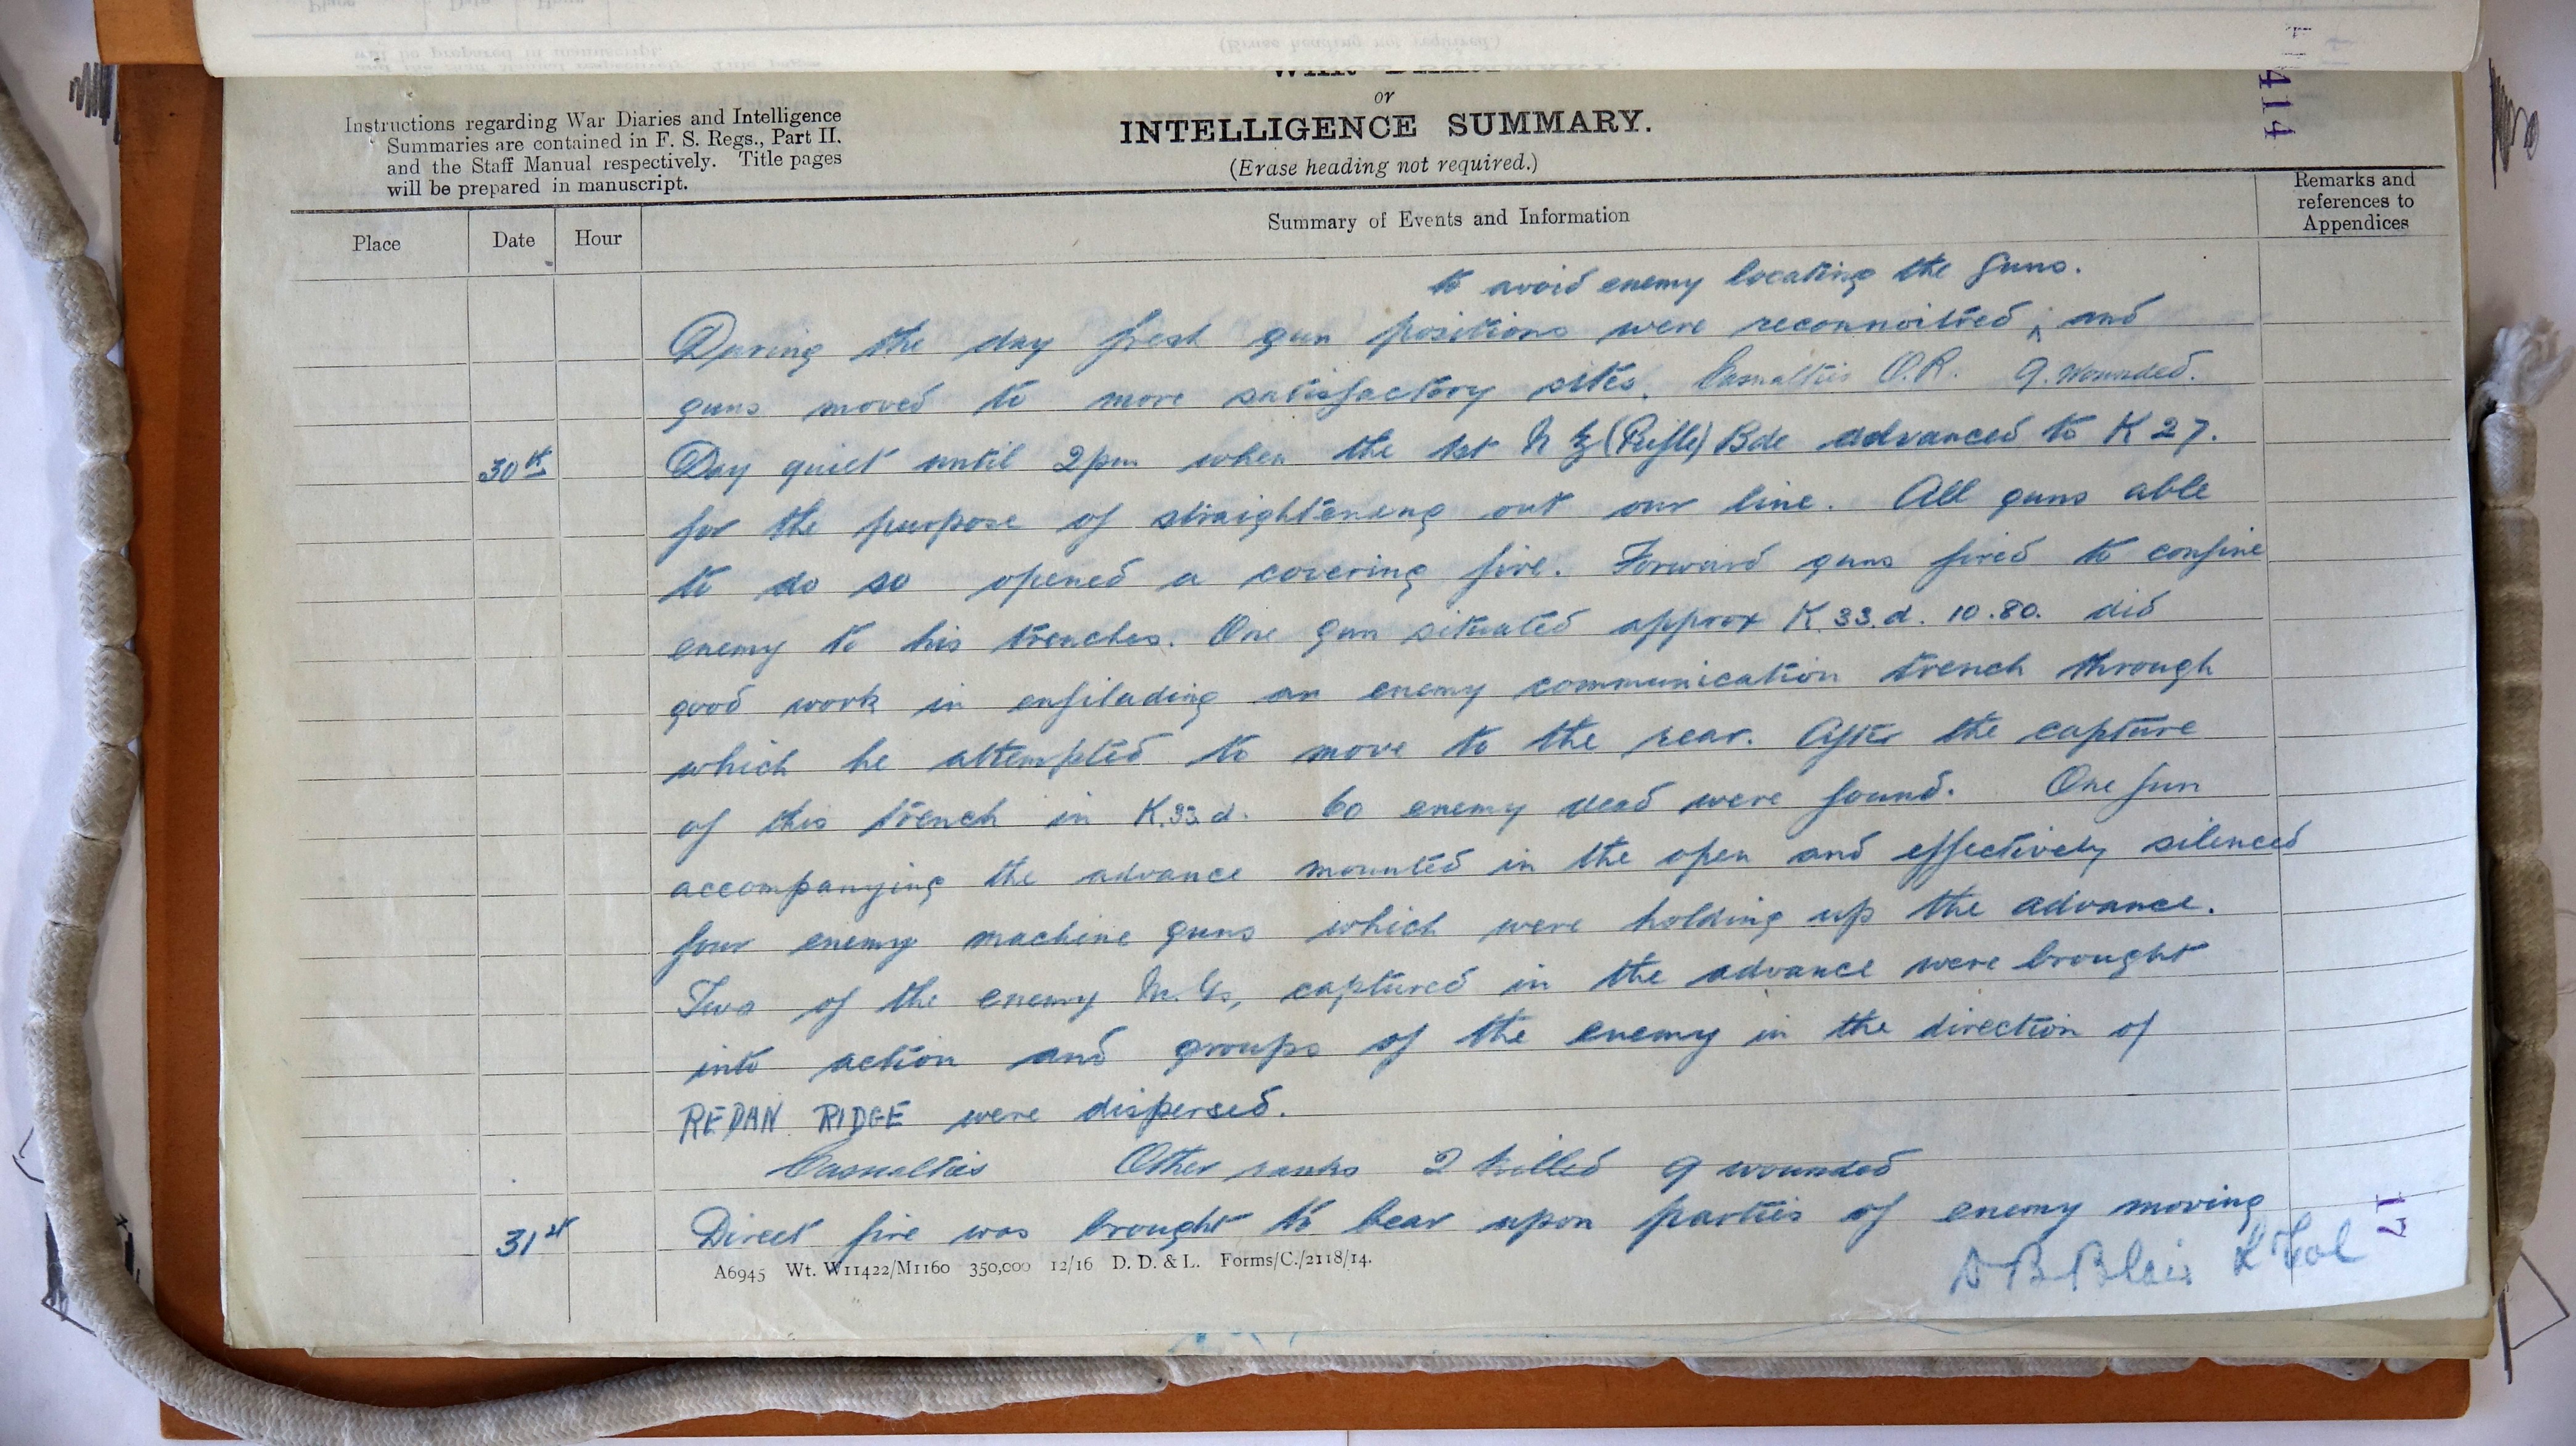 414
or
INTELLIGENCE SUMMARY.
(Erase heading not required.)
Instructions regarding War Diaries and Intelligence
Summaries are contained in F. S. Regs., Part II.
and the Staff Manual respectively. Title pages
will be prepared in manuscript.
Place Date Hour Summary of Events and Information Remarks and
references to
Appendices
to avoid enemy locating the guns.
During the day fresh gun positions were reconnoitred ; ^ and
guns moved to more satisfactory sites. Casualties O.R. 9. Wounded.
30th Day quiet until 2pm when the 1st N Z (Rifle) Bde advanced to K 27.
for the purpose of straightening out our line. All guns able
to do so opened a covering fire. Forward guns fired to confine
enemy to his trenches. One gun situated approx K.33.d. 10.80. did
good work in enfilading an enemy communication trench through
which he attempted to move to the rear. After the capture
of this trench in K.33.d. 60 enemy dead were found. One gun
accompanying the advance mounted in the open and effectively silenced
four enemy machine guns which were holding up the advance.
Two of the enemy M.Gs, captured in the advance were brought
into action and groups of the enemy in the direction of
REDAN RIDGE were dispersed.
Casualties Other ranks 2 killed 9 wounded
31st Direct fire was brought to bear upon parties of enemy moving
A6945 Wt. W11422/M1160 350,000 12/16 D. D. & L. Forms/C./2118/14.
D B Blair Lt Col
17